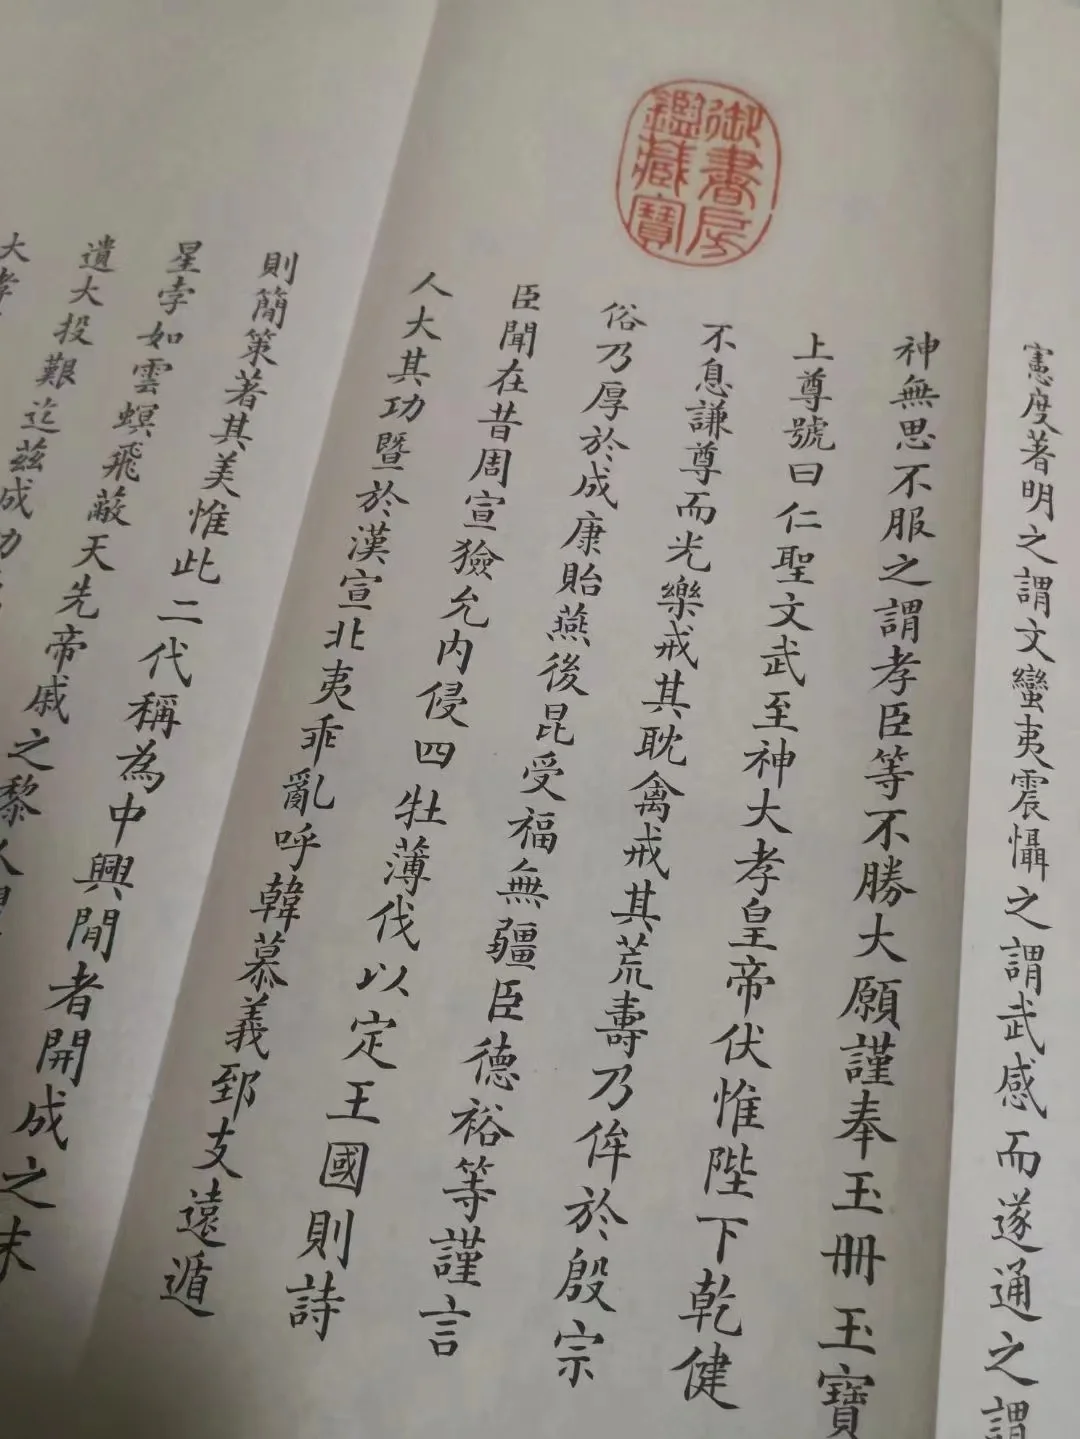 御書房
鑑藏寶
憲度著明之謂文蠻夷震懾之謂武感而遂通之謂
神無思不服之謂孝臣等不勝大願謹奉玉冊玉寶
上尊號曰仁聖文武至神大孝皇帝伏惟陛下乾健
不息謙尊而光樂戒其耽禽戒其荒壽乃侔於殷宗
俗乃厚於成康貽燕後昆受福無疆臣德裕等謹言
臣聞在昔周宣獫允內侵四牡薄伐以定王國則詩
人大其功暨於漢宣北夷乖亂呼韓慕義郅支遠遁
則簡策著其美惟此二代稱為中興閒者開成之末
星孛如雲螟飛蔽天先帝戚之黎人
遺大投艱迄茲成功
大孝